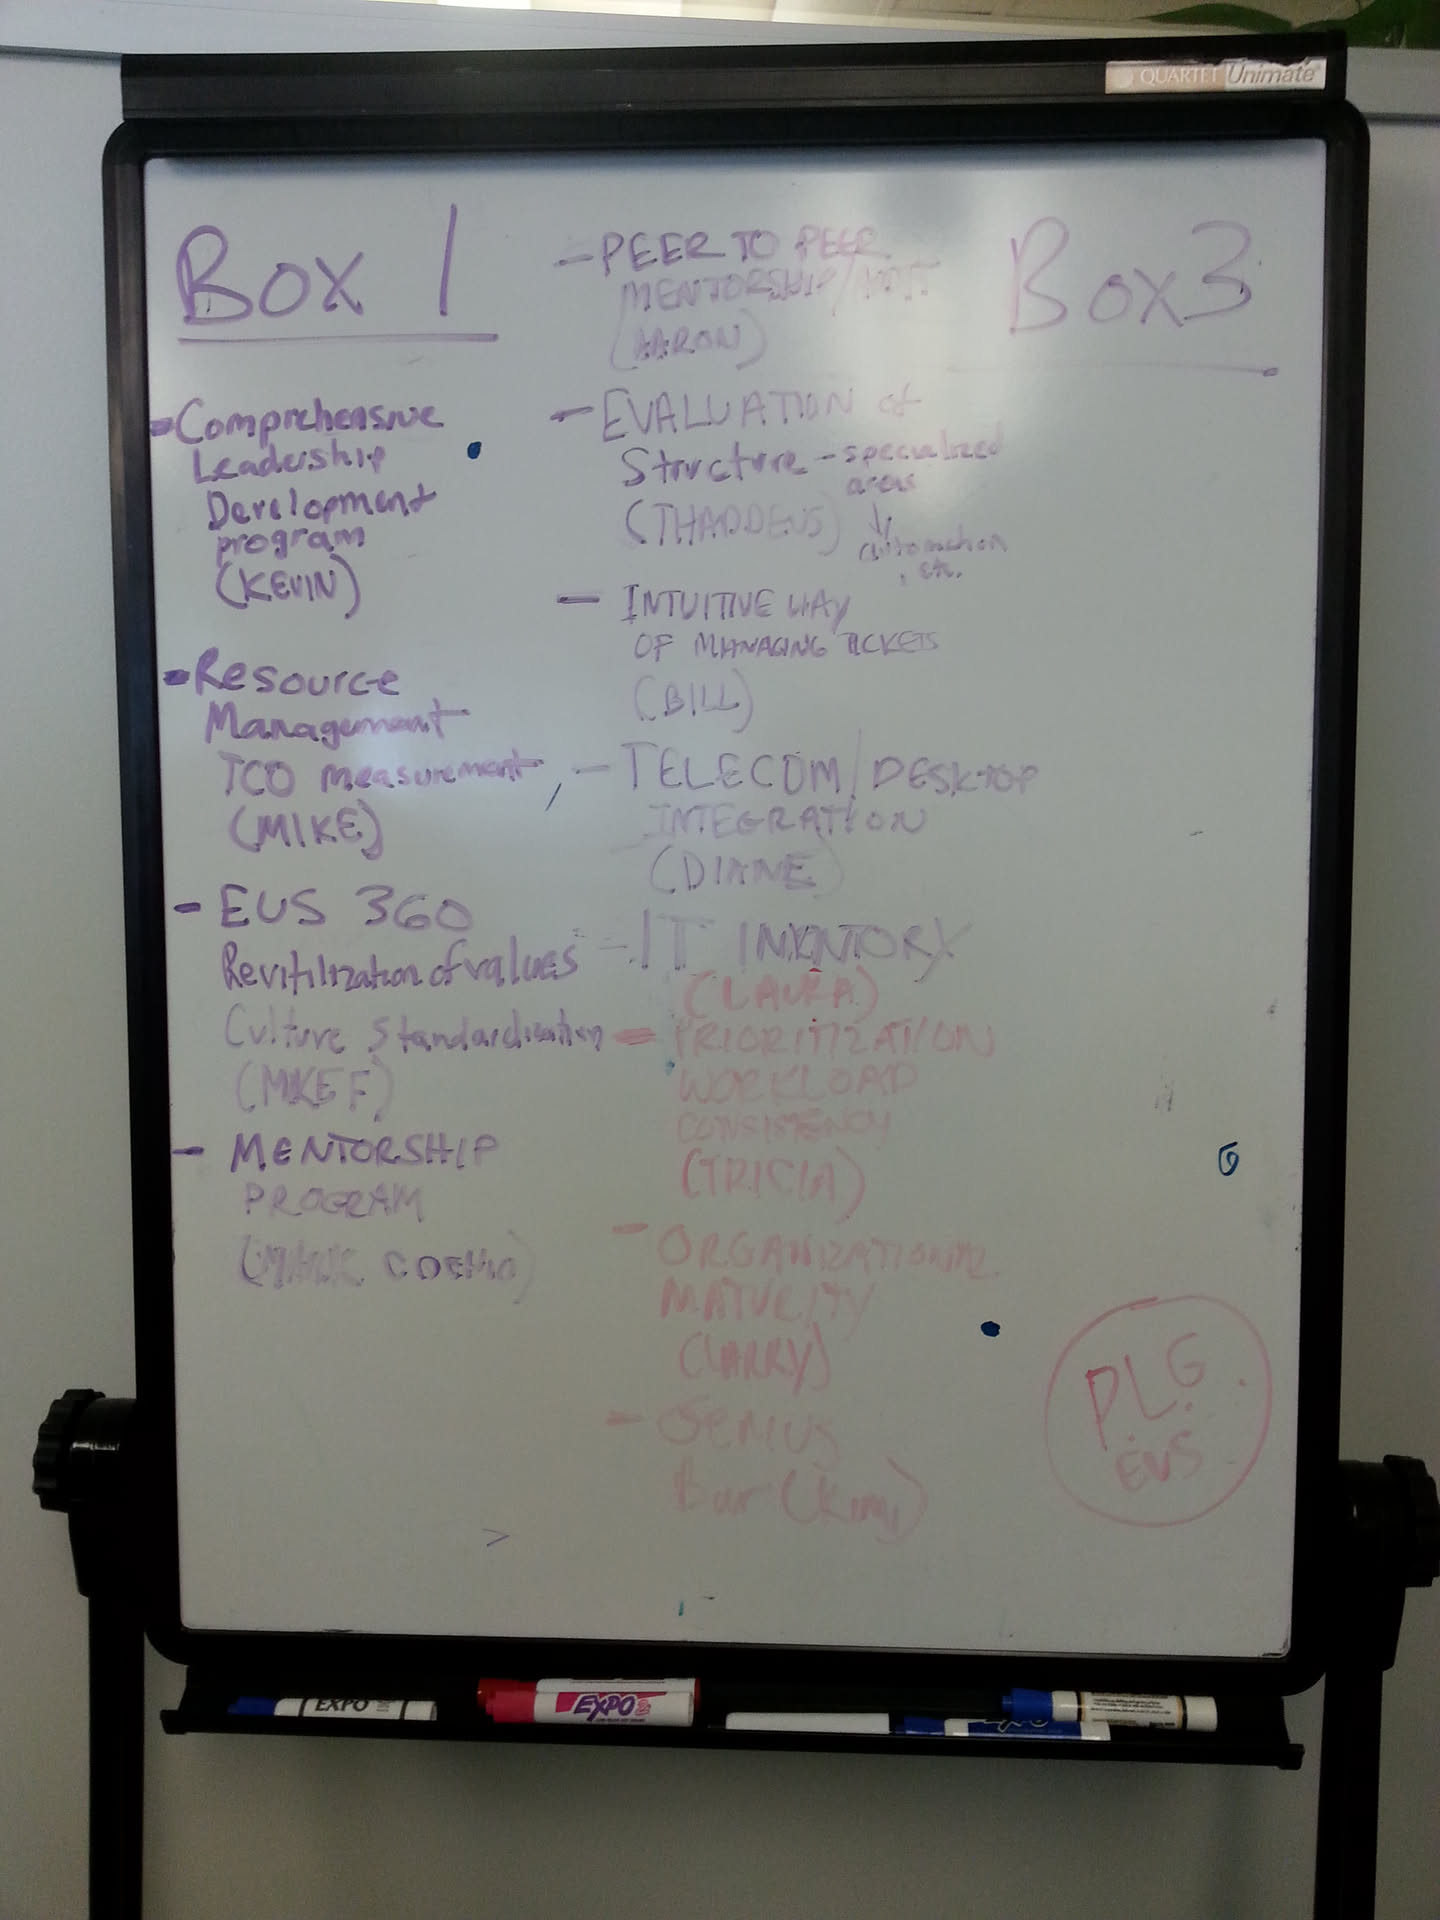 QUARTET Unimate®
Box 1
- Comprehensive
Leadership
Development
program
(KEVIN)
- Resource
Management
TCO measurement
(MIKE)
- EUS 360
Revitilization of values
Culture Standardization
(MIKE F)
- MENTORSHIP
PROGRAM
COELHO)
- PEER TO PEER
MENTORSHIP/
(AARON)
- EVALUATION of
Structure - specialized
areas
(THADDEUS) ↓
automation
, etc.
- INTUITIVE WAY
OF MANAGING TICKETS
(BILL)
- TELECOM/DESKTOP
INTEGRATION
(DIANE)
- IT INVENTORY
(LAURA)
- PRIORITIZATION
WORKLOAD
CONSISTENCY
(TRICIA)
- ORGANIZATIONAL
MATURITY
(LARRY)
- Genius
Bar (Kimi)
Box 3
P.L.G.
EUS
EXPO
EXPO